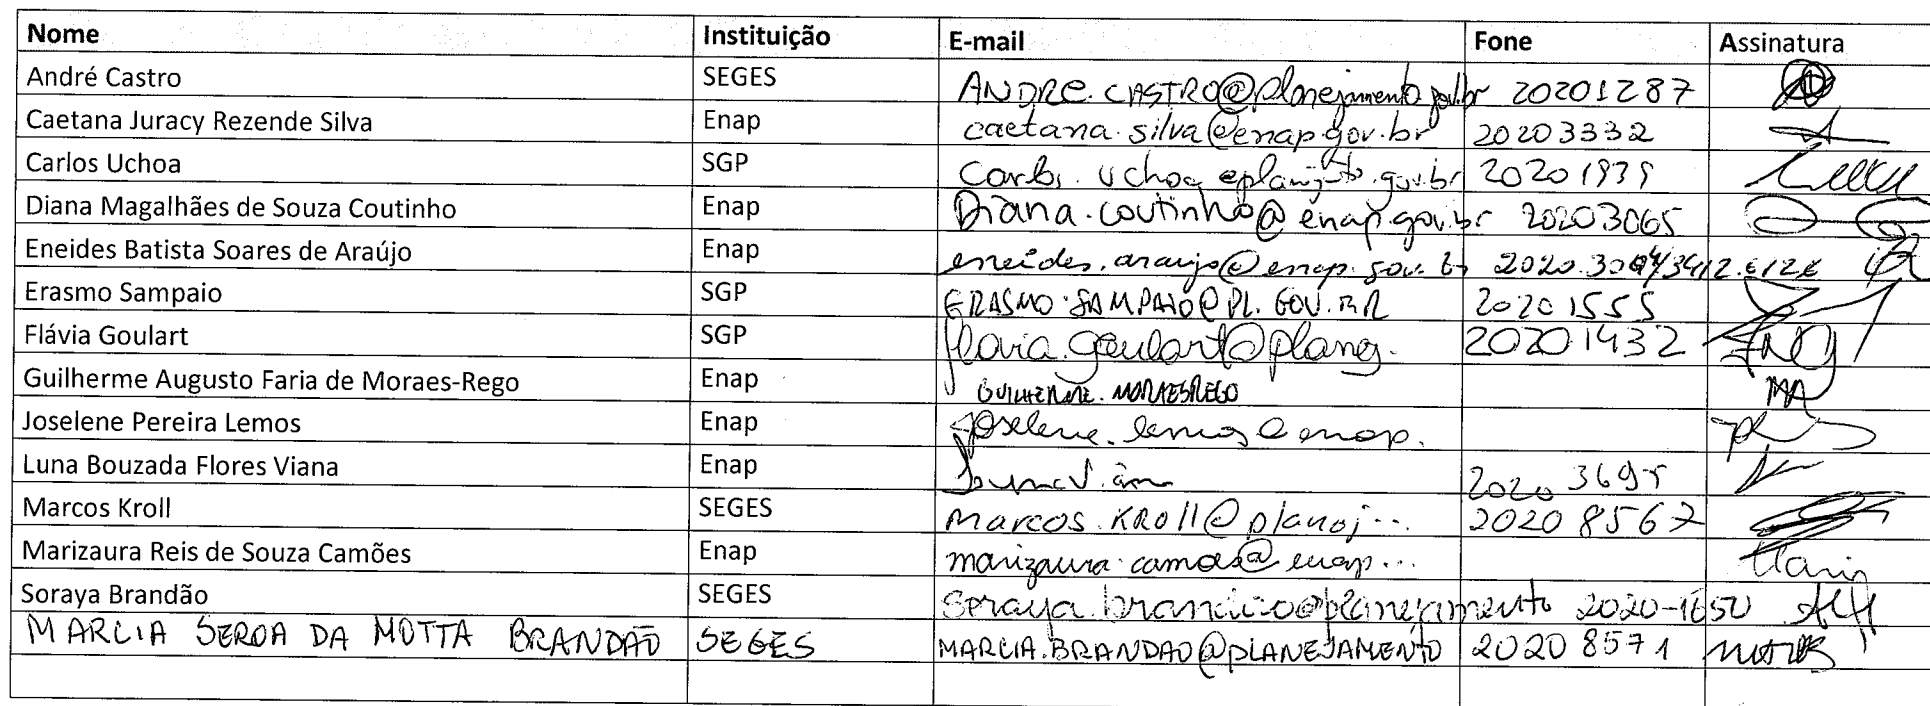 Nome Instituição E-mail Fone Assinatura
André Castro SEGES ANDRE.CASTRO@planejamento.gov.br 20201287
Caetana Juracy Rezende Silva Enap caetana.silva@enap.gov.br 20203332
Carlos Uchoa SGP 20201939
Diana Magalhães de Souza Coutinho Enap Diana.coutinho@enap.gov.br 20203065
Eneides Batista Soares de Araújo Enap eneides.araujo@enap.gov.br
Erasmo Sampaio SGP ERASMO.SAMPAIO@PL.GOV.BR 20201555
Flávia Goulart SGP flavia.goulart@planej. 20201432
Guilherme Augusto Faria de Moraes-Rego Enap GUILHERME.MORAESREGO
Joselene Pereira Lemos Enap joselene.lemos@enap.
Luna Bouzada Flores Viana Enap 2020 3695
Marcos Kroll SEGES marcos.KROll@planej... 2020 8567
Marizaura Reis de Souza Camões Enap marizaura.camoes@enap...
Soraya Brandão SEGES soraya.brandao@planejamento 2020-1650
MARCIA SEROA DA MOTTA BRANDÃO SEGES MARCIA.BRANDAO@PLANEJAMENTO 2020 8571